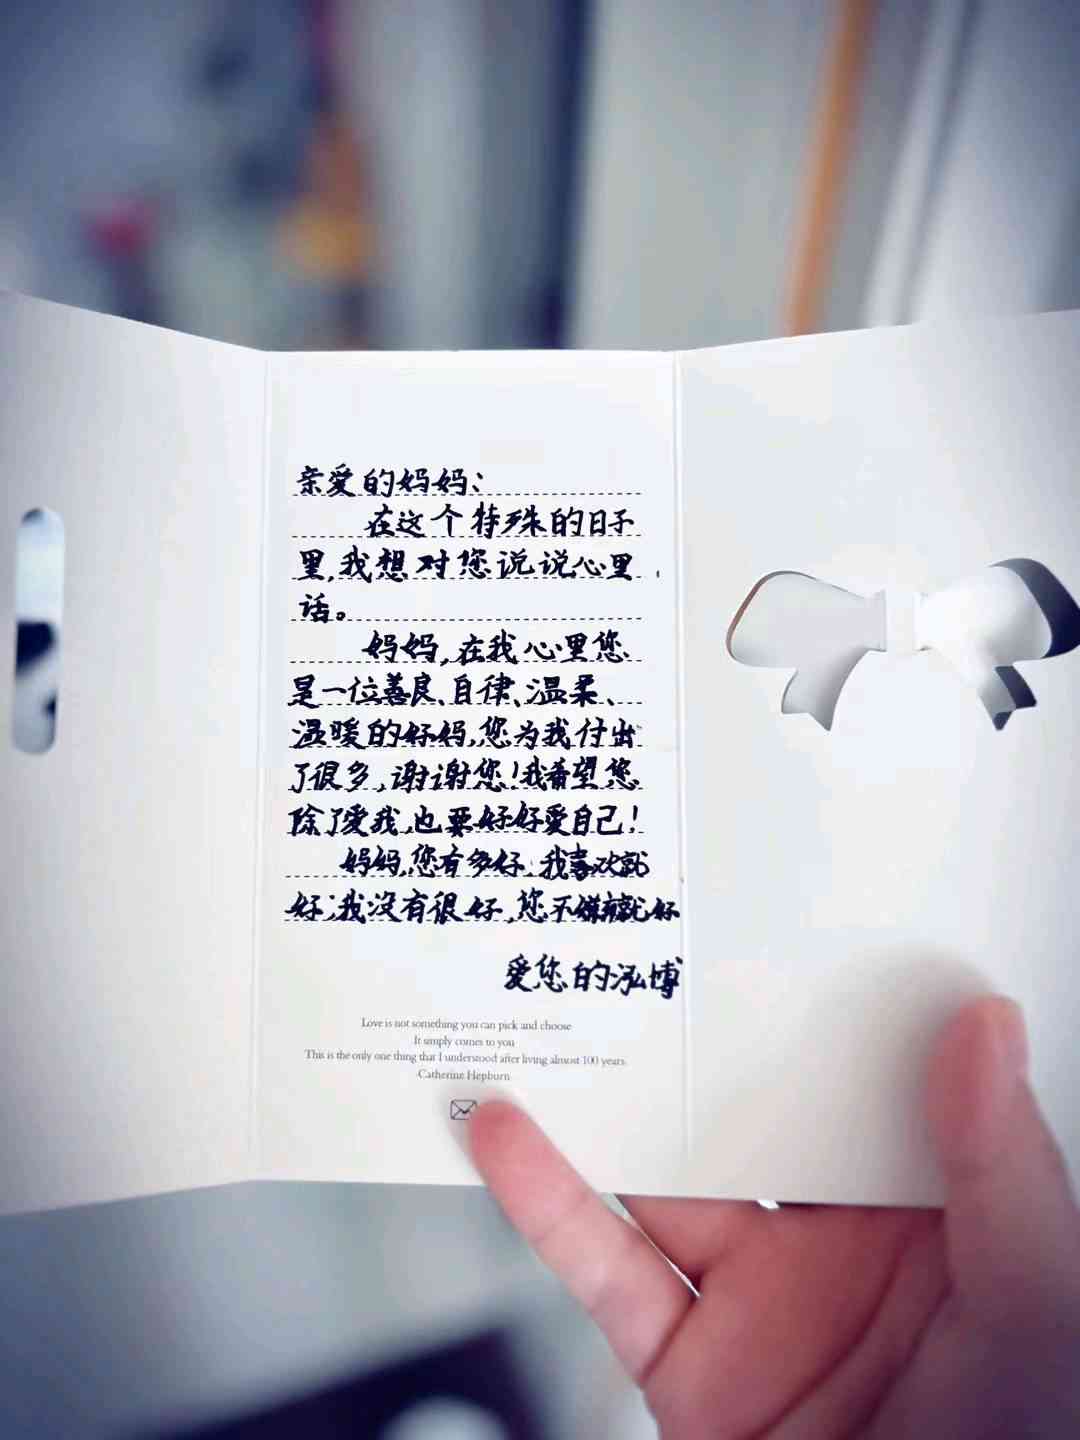 亲爱的妈妈：
在这个特殊的日子
里,我想对您说说心里
话。
妈妈,在我心里您
是一位善良、自律、温柔、
温暖的好妈妈,您为我付出
了很多,谢谢您!我希望您
除了爱我,也要好好爱自己!
妈妈,您有多好,我喜欢就
好;我没有很好,您不嫌弃就好
爱您的泓博
Love is not something you can pick and choose
It simply comes to you
This is the only one thing that I understood after living almost 100 years.
-Catherine Hepburn